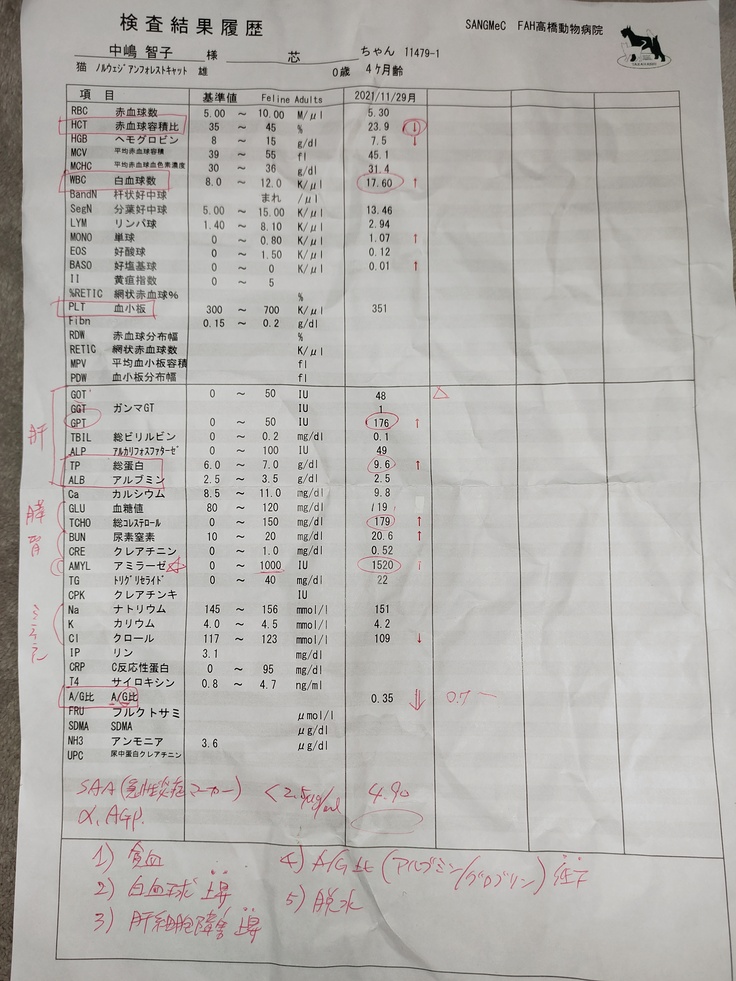 検査結果履歴
SANGMeC FAH高橋動物病院
中嶋 智子 様 芯 ちゃん 11479-1
猫 ノルウェジアンフォレストキャット 雄 0歳 4ケ月齢
項 目 基準値 Feline Adults 2021/11/29月
RBC 赤血球数 5.00 ～ 10.00 M/μl 5.30
HCT 赤血球容積比 35 ～ 45 % 23.9 ↓
HGB ヘモグロビン 8 ～ 15 g/dl 7.5 ↓
MCV 平均赤血球容積 39 ～ 55 fl 45.1
MCHC 平均赤血球血色素濃度 30 ～ 36 g/dl 31.4
WBC 白血球数 8.0 ～ 12.0 K/μl 17.60 ↑
BandN 杆状好中球 まれ /μl
SegN 分葉好中球 5.00 ～ 15.00 K/μl 13.46
LYM リンパ球 1.40 ～ 8.10 K/μl 2.94
MONO 単球 0 ～ 0.80 K/μl 1.07 ↑
EOS 好酸球 0 ～ 1.50 K/μl 0.12
BASO 好塩基球 0 ～ 0 K/μl 0.01 ↑
II 黄疸指数 0 ～ 5
%RETIC 網状赤血球% %
PLT 血小板 300 ～ 700 K/μl 351
Fibn 0.15 ～ 0.2 g/dl
RDW 赤血球分布幅 %
RETIC 網状赤血球数 K/μl
MPV 平均血小板容積 fl
PDW 血小板分布幅 fl
GOT 0 ～ 50 IU 48 △
GGT ガンマGT IU 1
GPT 0 ～ 50 IU 176 ↑
肝
TBIL 総ビリルビン 0 ～ 0.2 mg/dl 0.1
ALP アルカリフォスファターゼ 0 ～ 100 IU 49
TP 総蛋白 6.0 ～ 7.0 g/dl 9.6 ↑
ALB アルブミン 2.5 ～ 3.5 g/dl 2.5
Ca カルシウム 8.5 ～ 11.0 mg/dl 9.8
膵 GLU 血糖値 80 ～ 120 mg/dl 119
TCHO 総コレステロール 0 ～ 150 mg/dl 179 ↑
腎 BUN 尿素窒素 10 ～ 20 mg/dl 20.6 ↑
CRE クレアチニン 0 ～ 1.0 mg/dl 0.52
AMYL アミラーゼ 0 ～ 1000 IU 1520 ↑
TG トリグリセライド 0 ～ 40 mg/dl 22
CPK クレアチンキ IU
Na ナトリウム 145 ～ 156 mmol/l 151
ミネラル
K カリウム 4.0 ～ 4.5 mmol/l 4.2
Cl クロール 117 ～ 123 mmol/l 109 ↓
IP リン 3.1 mg/dl
CRP C反応性蛋白 0 ～ 95 mg/dl
T4 サイロキシン 0.8 ～ 4.7 ng/ml
A/G比 A/G比 0.35 ⇓ 0.7 ー
FRU フルクトサミ μmol/l
SDMA SDMA μg/dl
NH3 アンモニア 3.6 μg/dl
UPC 尿中蛋白クレアチニン
SAA (急性炎症マーカー) <2.5μg/ml 4.90
α, AGP.
1) 貧血 4) A/G比 (アルブミン/グロブリン) 低下
2) 白血球 上昇 5) 脱水
3) 肝細胞障害 上昇